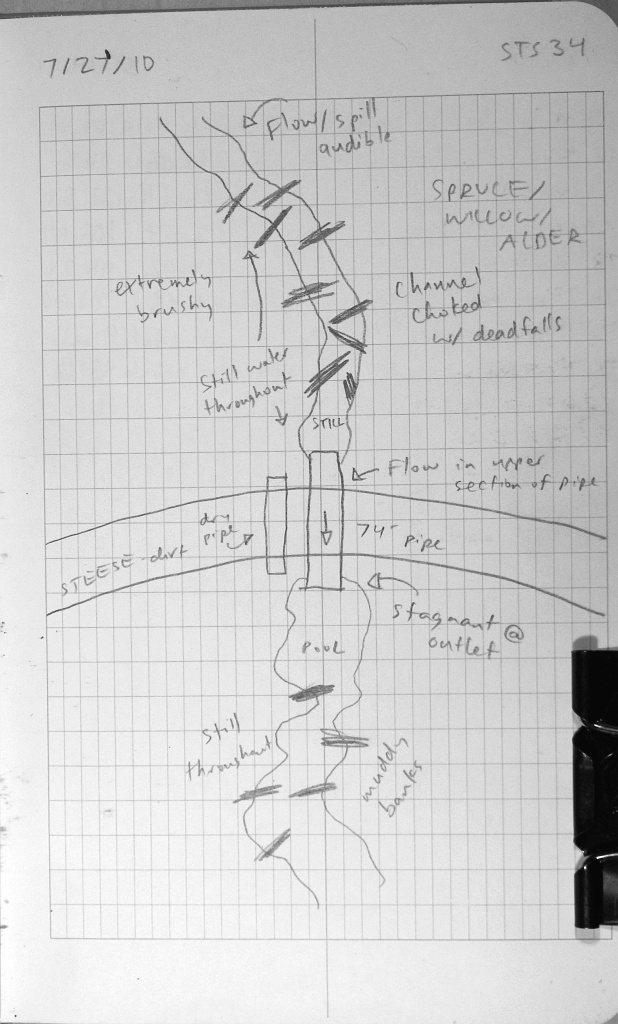 7/27/10
STS34
Flow/spill
audible
SPRUCE/
WILLOW/
ALDER
extremely
brushy
channel
choked
w/ deadfalls
Still water
throughout
STILL
Flow in upper
section of pipe
dry
pipe
74"
pipe
STEESE-dirt
Stagnant @
outlet
POOL
Still
throughout
muddy
banks